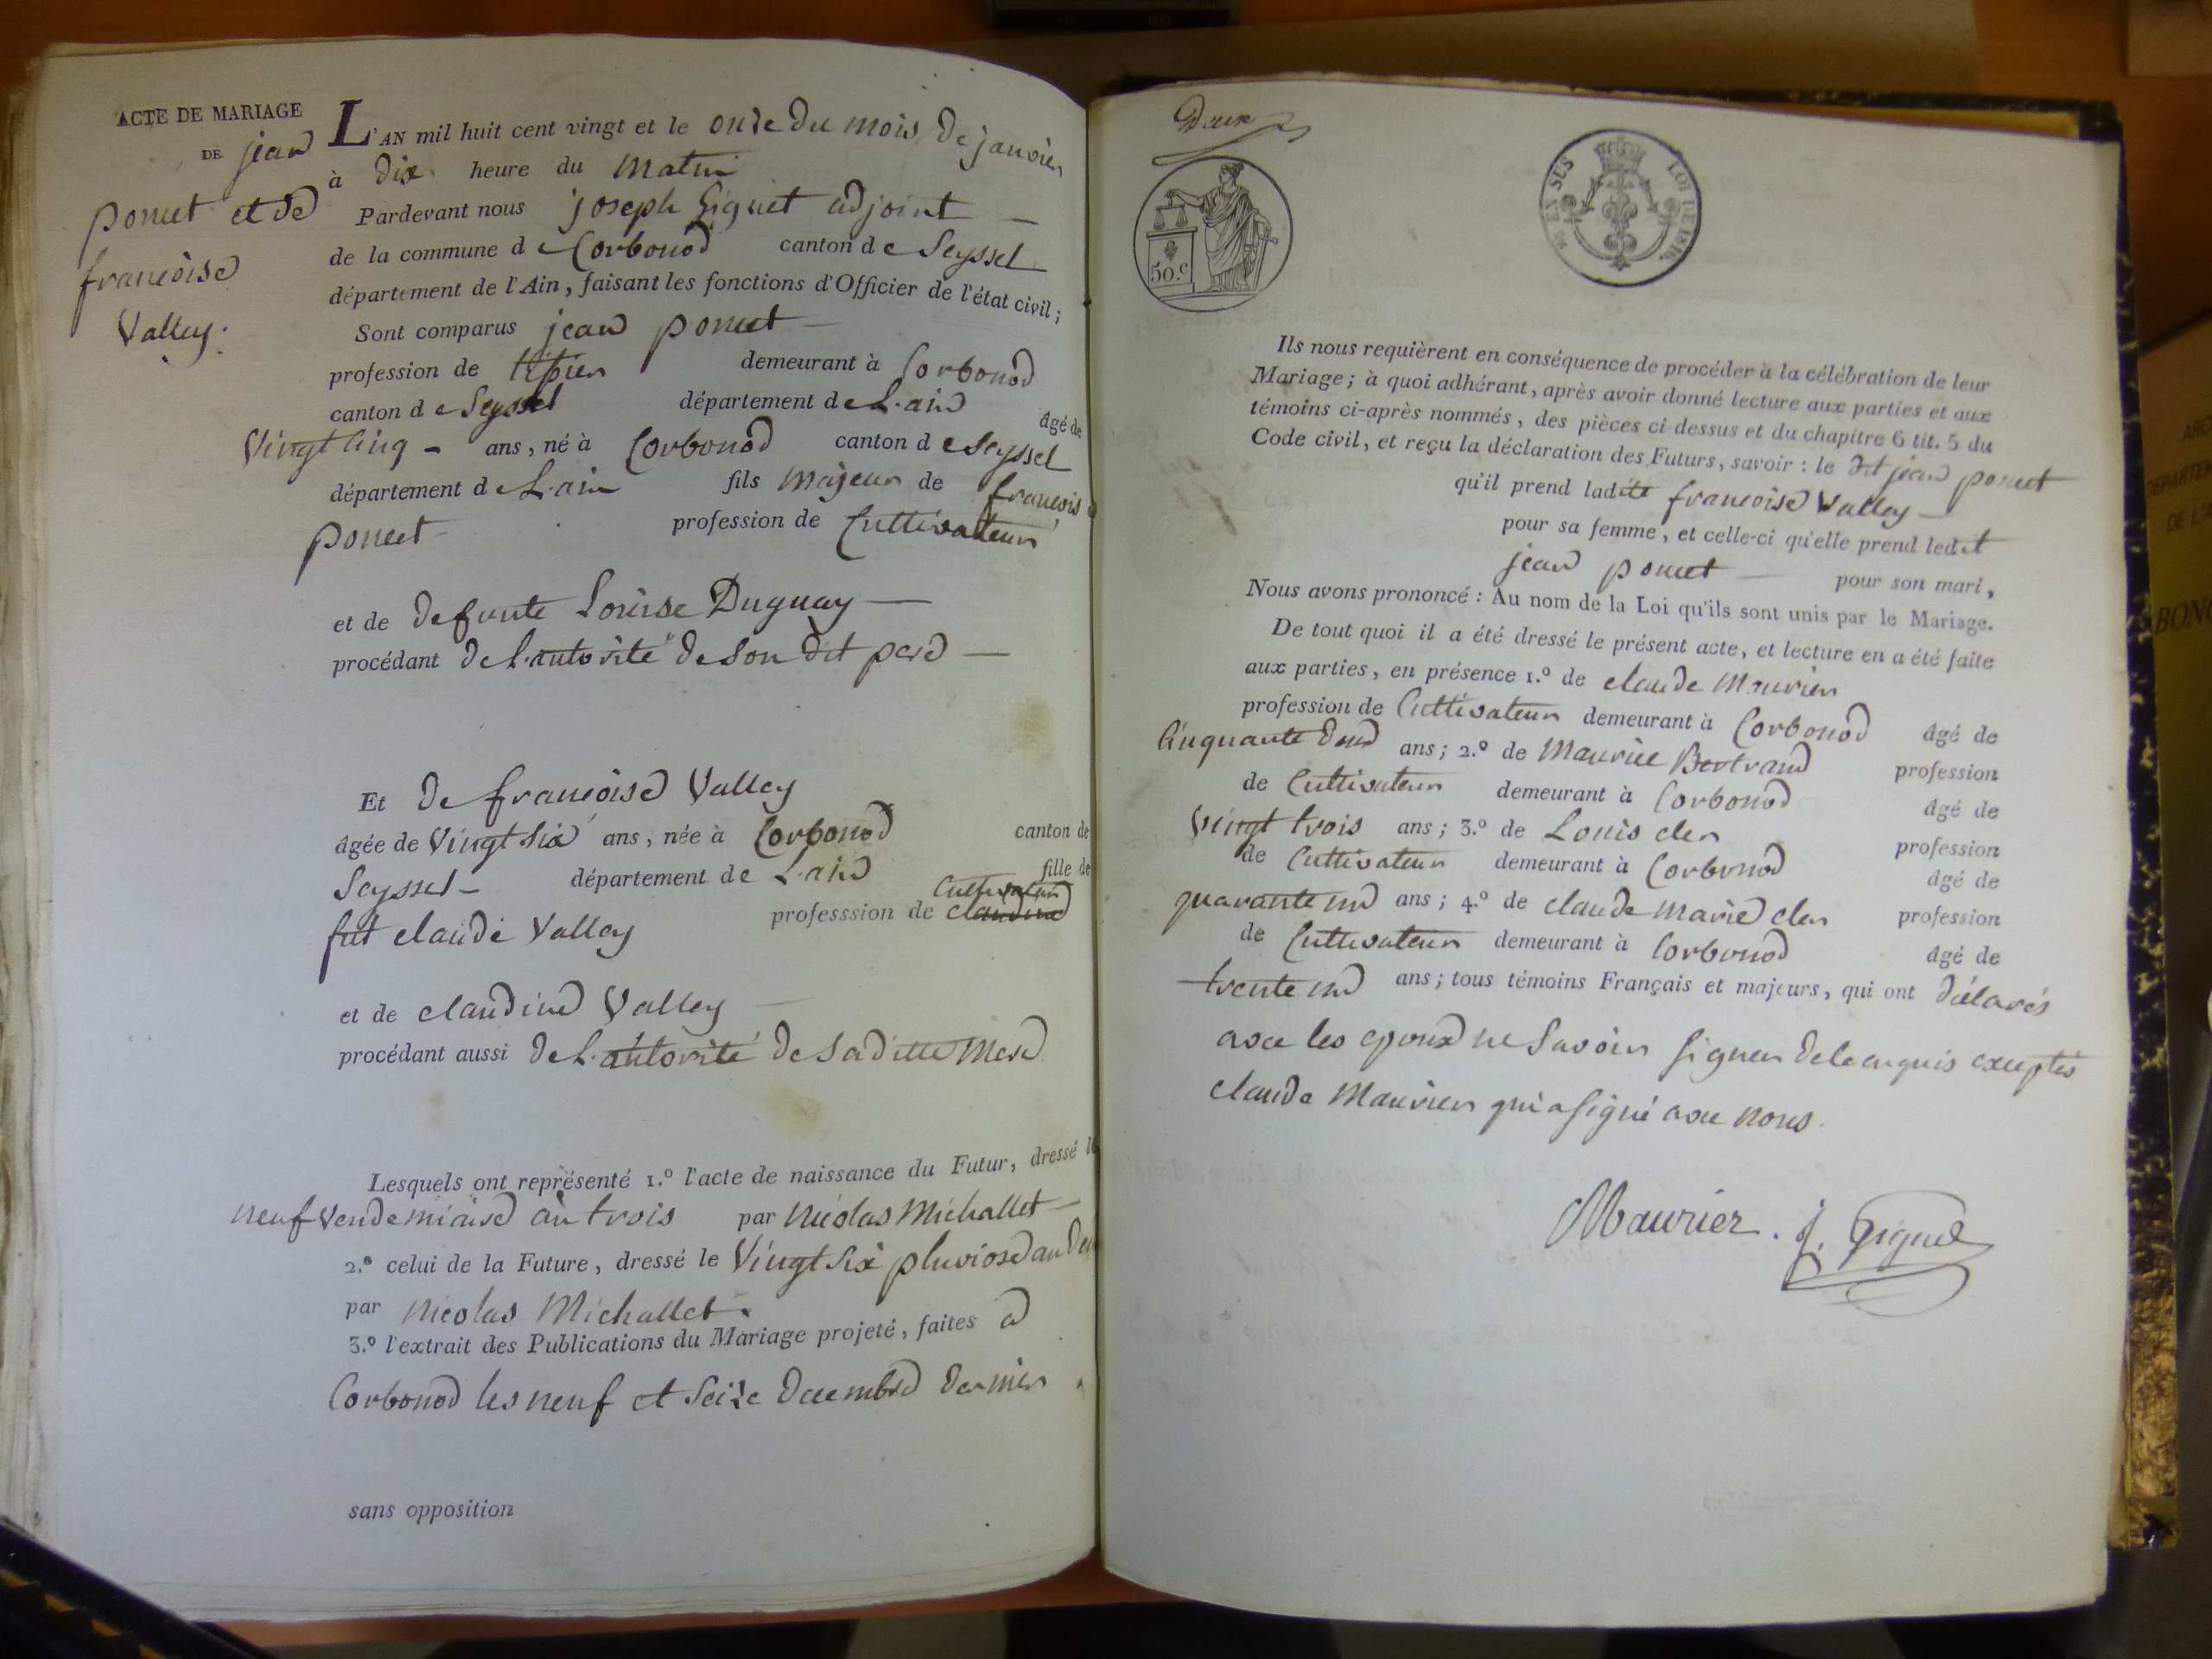 ACTE DE MARIAGE
DE jean
poncet et de
francoise
Valley.
L'AN mil huit cent vingt et le onze du mois de janvier
à dix heure du matin
Pardevant nous joseph Giguet adjoint
de la commune de Corbonod canton de Seyssel
département de l'Ain, faisant les fonctions d'Officier de l'état civil;
Sont comparus jean poncet
profession de demeurant à Corbonod
canton de Seyssel département de L'ain âgé de
Vingt cinq ans, né à Corbonod canton de Seyssel
département de L'ain fils majeur de francois
poncet profession de Cultivateur
et de defunte Louise Duguay
procédant de L'autorité de son dit pere
Et de francoise Valley
âgée de Vingt six ans, née à Corbonod canton de
Seyssel département de L'ain fille de
fut claude Valley professsion de claudine Cultivateur
et de claudine Valley
procédant aussi de L'autorité de sa ditte Mere
Lesquels ont représenté 1.º l'acte de naissance du Futur, dressé le
neuf Vendemiaire an trois par Nicolas Michallet
2.º celui de la Future, dressé le Vingt six pluviose an deux
par Nicolas Michallet
3.º l'extrait des Publications du Mariage projeté, faites a
Corbonod les neuf et seize decembre dernier
sans opposition
Deux
50.c
EN SUS LOI DE 1816.
Ils nous requièrent en conséquence de procéder à la célébration de leur
Mariage; à quoi adhérant, après avoir donné lecture aux parties et aux
témoins ci-après nommés, des pièces ci-dessus et du chapitre 6 tit. 5 du
Code civil, et reçu la déclaration des Futurs, savoir: le dit jean poncet
qu'il prend ladite francoise Valley
pour sa femme, et celle-ci qu'elle prend ledit
jean poncet pour son mari,
Nous avons prononcé: Au nom de la Loi qu'ils sont unis par le Mariage.
De tout quoi il a été dressé le présent acte, et lecture en a été faite
aux parties, en présence 1.º de claude Maurier
profession de Cultivateur demeurant à Corbonod âgé de
Cinquante deux ans; 2.º de Maurice Bertrand profession
de Cultivateur demeurant à Corbonod âgé de
Vingt trois ans; 3.º de Louis cler profession
de Cultivateur demeurant à Corbonod âgé de
quarante un ans; 4.º de claude marie cler profession
de Cultivateur demeurant à Corbonod âgé de
trente un ans; tous témoins Français et majeurs, qui ont déclarés
avec les epoux ne Savoir signer de ce enquis exceptés
claude Maurier qui a signé avec nous.
Maurier. J. Giguet